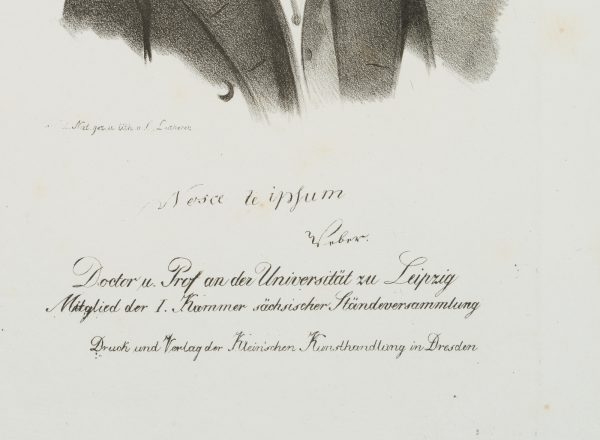 Nat. gez. u. lith. v.
Nosce te ipsum
Weber.
Doctor u. Prof an der Universität zu Leipzig
Mitglied der I. Kammer sächsischer Ständeversammlung
Druck und Verlag der Klein'schen Kunsthandlung in Dresden